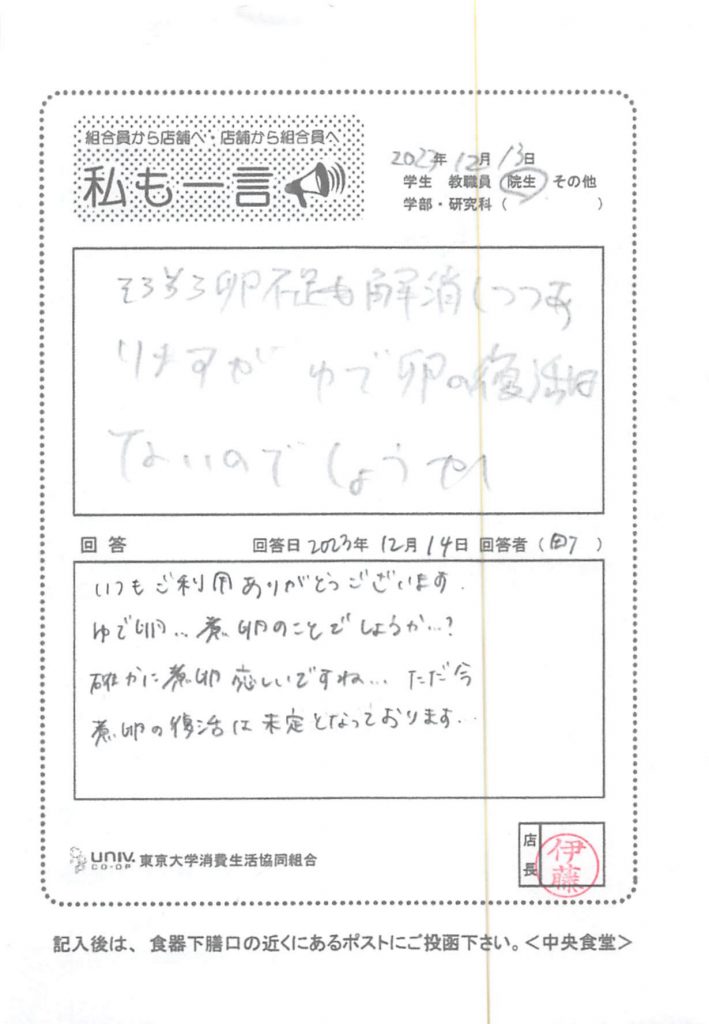 組合員から店舗へ・店舗から組合員へ
私も一言
2023年12月13日
学生 教職員 院生 その他
学部・研究科( )
そろそろ卵不足も解消しつつあ
りますが ゆで卵の復活は
ないのでしょうか
回答 回答日 2023年 12月 14日 回答者( )
いつもご利用ありがとうございます.
ゆで卵… 煮卵のことでしょうか…?
確かに煮卵恋しいですね… ただ今
煮卵の復活は未定となっております…
UNIV. CO-OP 東京大学消費生活協同組合
店長 伊藤
記入後は、食器下膳口の近くにあるポストにご投函下さい。<中央食堂>